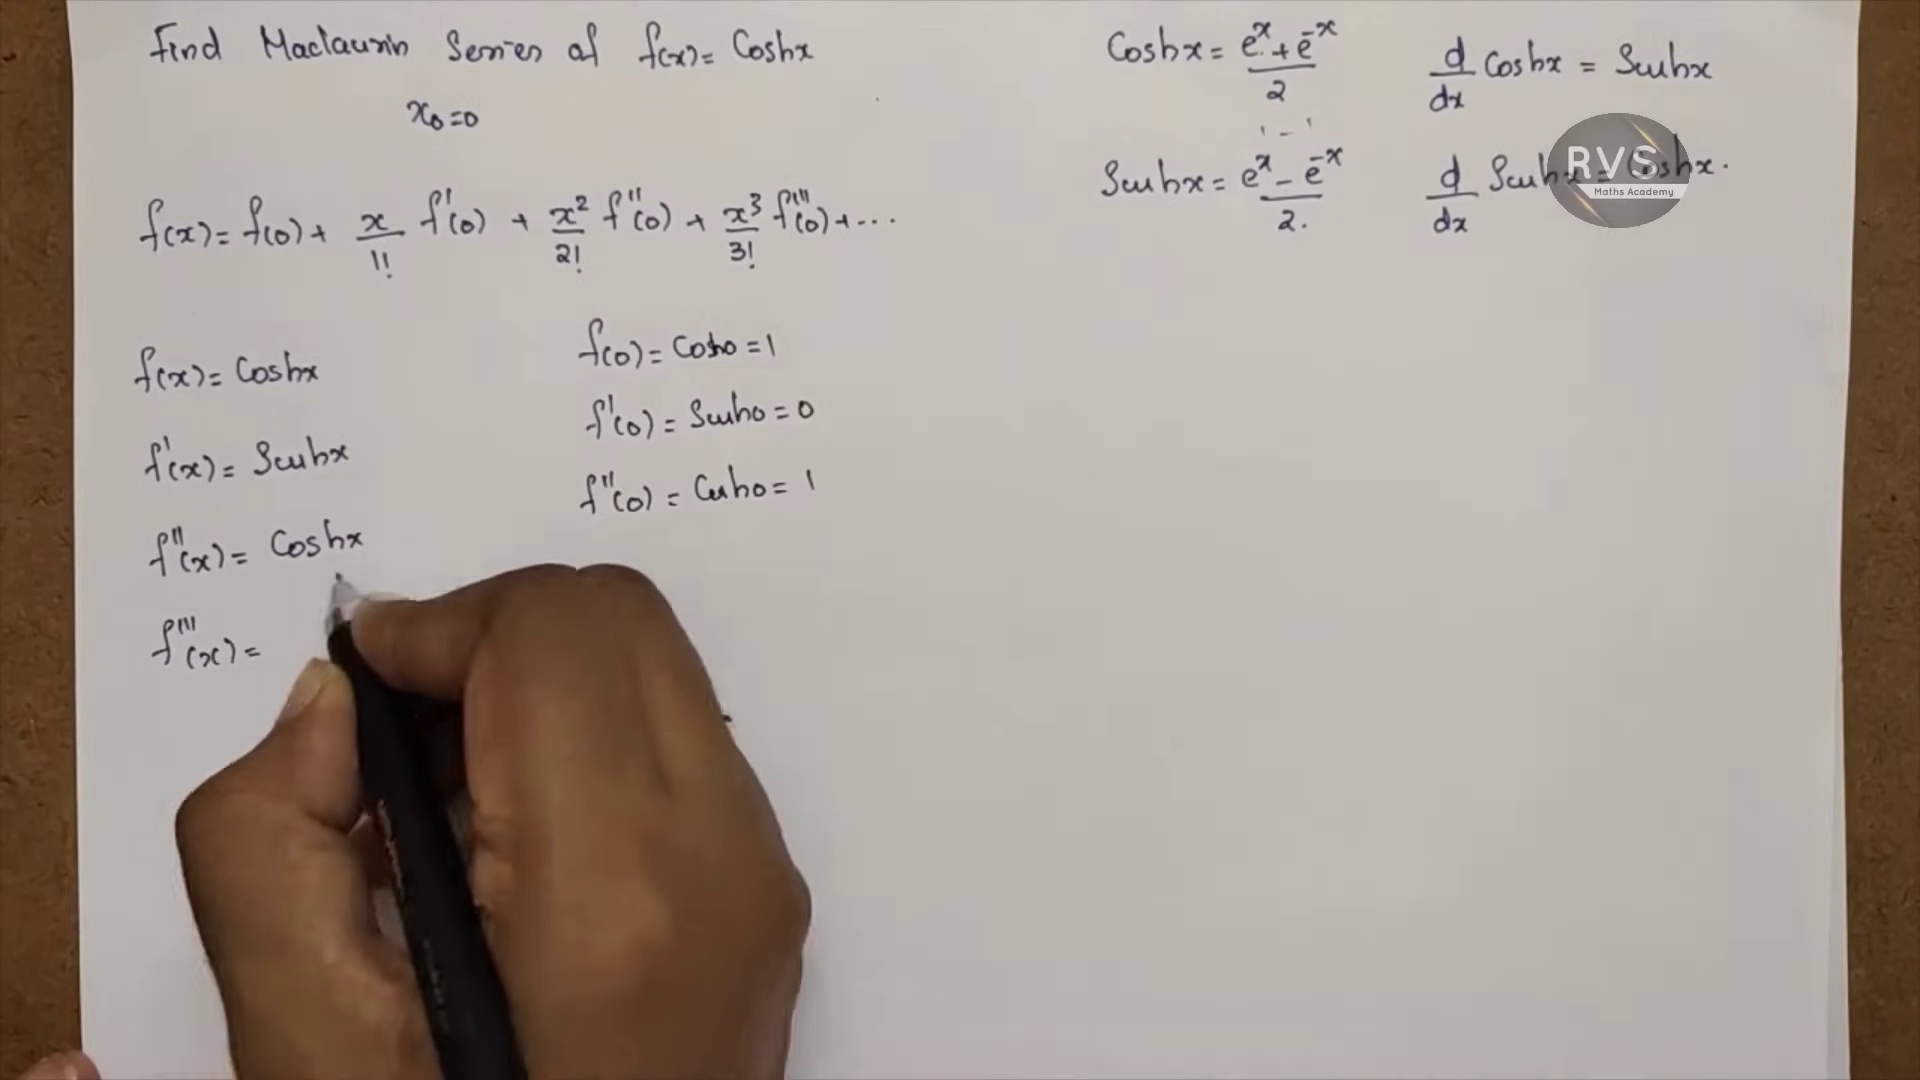 Find Maclaurin Series of f(x) = Coshx
x₀=0
f(x) = f(0) + x/1! f'(0) + x²/2! f''(0) + x³/3! f'''(0) + ...
f(x) = Coshx
f'(x) = Sinhx
f''(x) = Coshx
f'''(x) =
f(0) = Cosh0 = 1
f'(0) = Sinh0 = 0
f''(0) = Cosh0 = 1
Coshx = e^x + e^-x / 2
d/dx Coshx = Sinhx
Sinhx = e^x - e^-x / 2.
d/dx Sinhx = Coshx.
RVS
Maths Academy